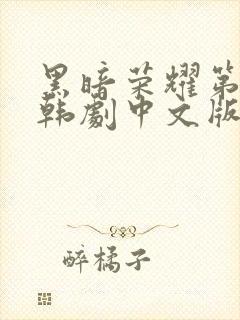 黑暗荣耀第
韩劇中文版
醉橘子